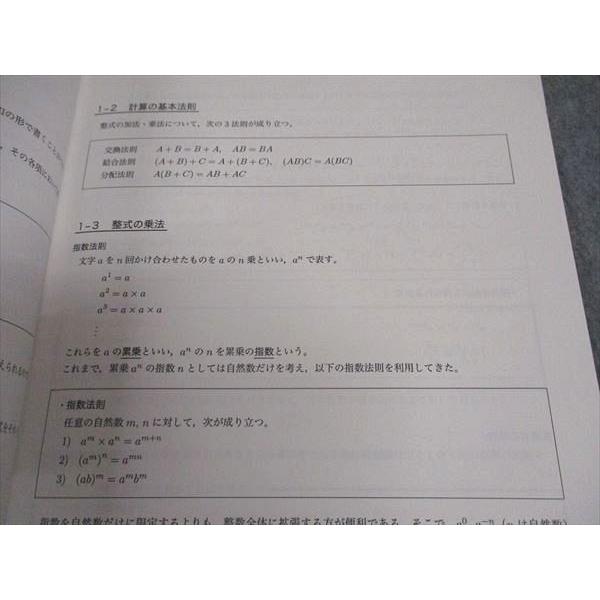 1-2 計算の基本法則
整式の加法・乗法について，次の3法則が成り立つ。
交換法則 A + B = B + A, AB = BA
結合法則 (A + B) + C = A + (B + C), (AB)C = A(BC)
分配法則 A(B + C) = AB + AC
1-3 整式の乗法
指数法則
文字 a を n 回かけ合わせたものを a の n 乗といい，aⁿ で表す。
a¹ = a
a² = a × a
a³ = a × a × a
⋮
これらを a の累乗といい，aⁿ の n を累乗の指数という。
これまで，累乗 aⁿ の指数 n としては自然数だけを考え，以下の指数法則を利用してきた。
・指数法則
任意の自然数 m, n に対して，次が成り立つ。
1) aᵐ × aⁿ = aᵐ⁺ⁿ
2) (aᵐ)ⁿ = aᵐⁿ
3) (ab)ᵐ = aᵐbᵐ
指数を自然数だけに限定するよりも，整数全体に拡張する方が便利である。そこで，a⁰, a⁻ⁿ (n は自然数)
の形で書くこと
，その各項に
えられるか